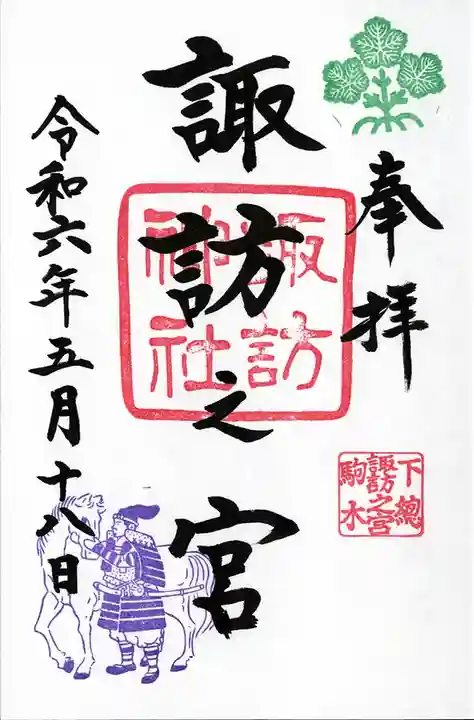 奉拝
下總
諏訪之宮
駒木
諏訪之宮
諏訪
神社
令和六年五月十八日